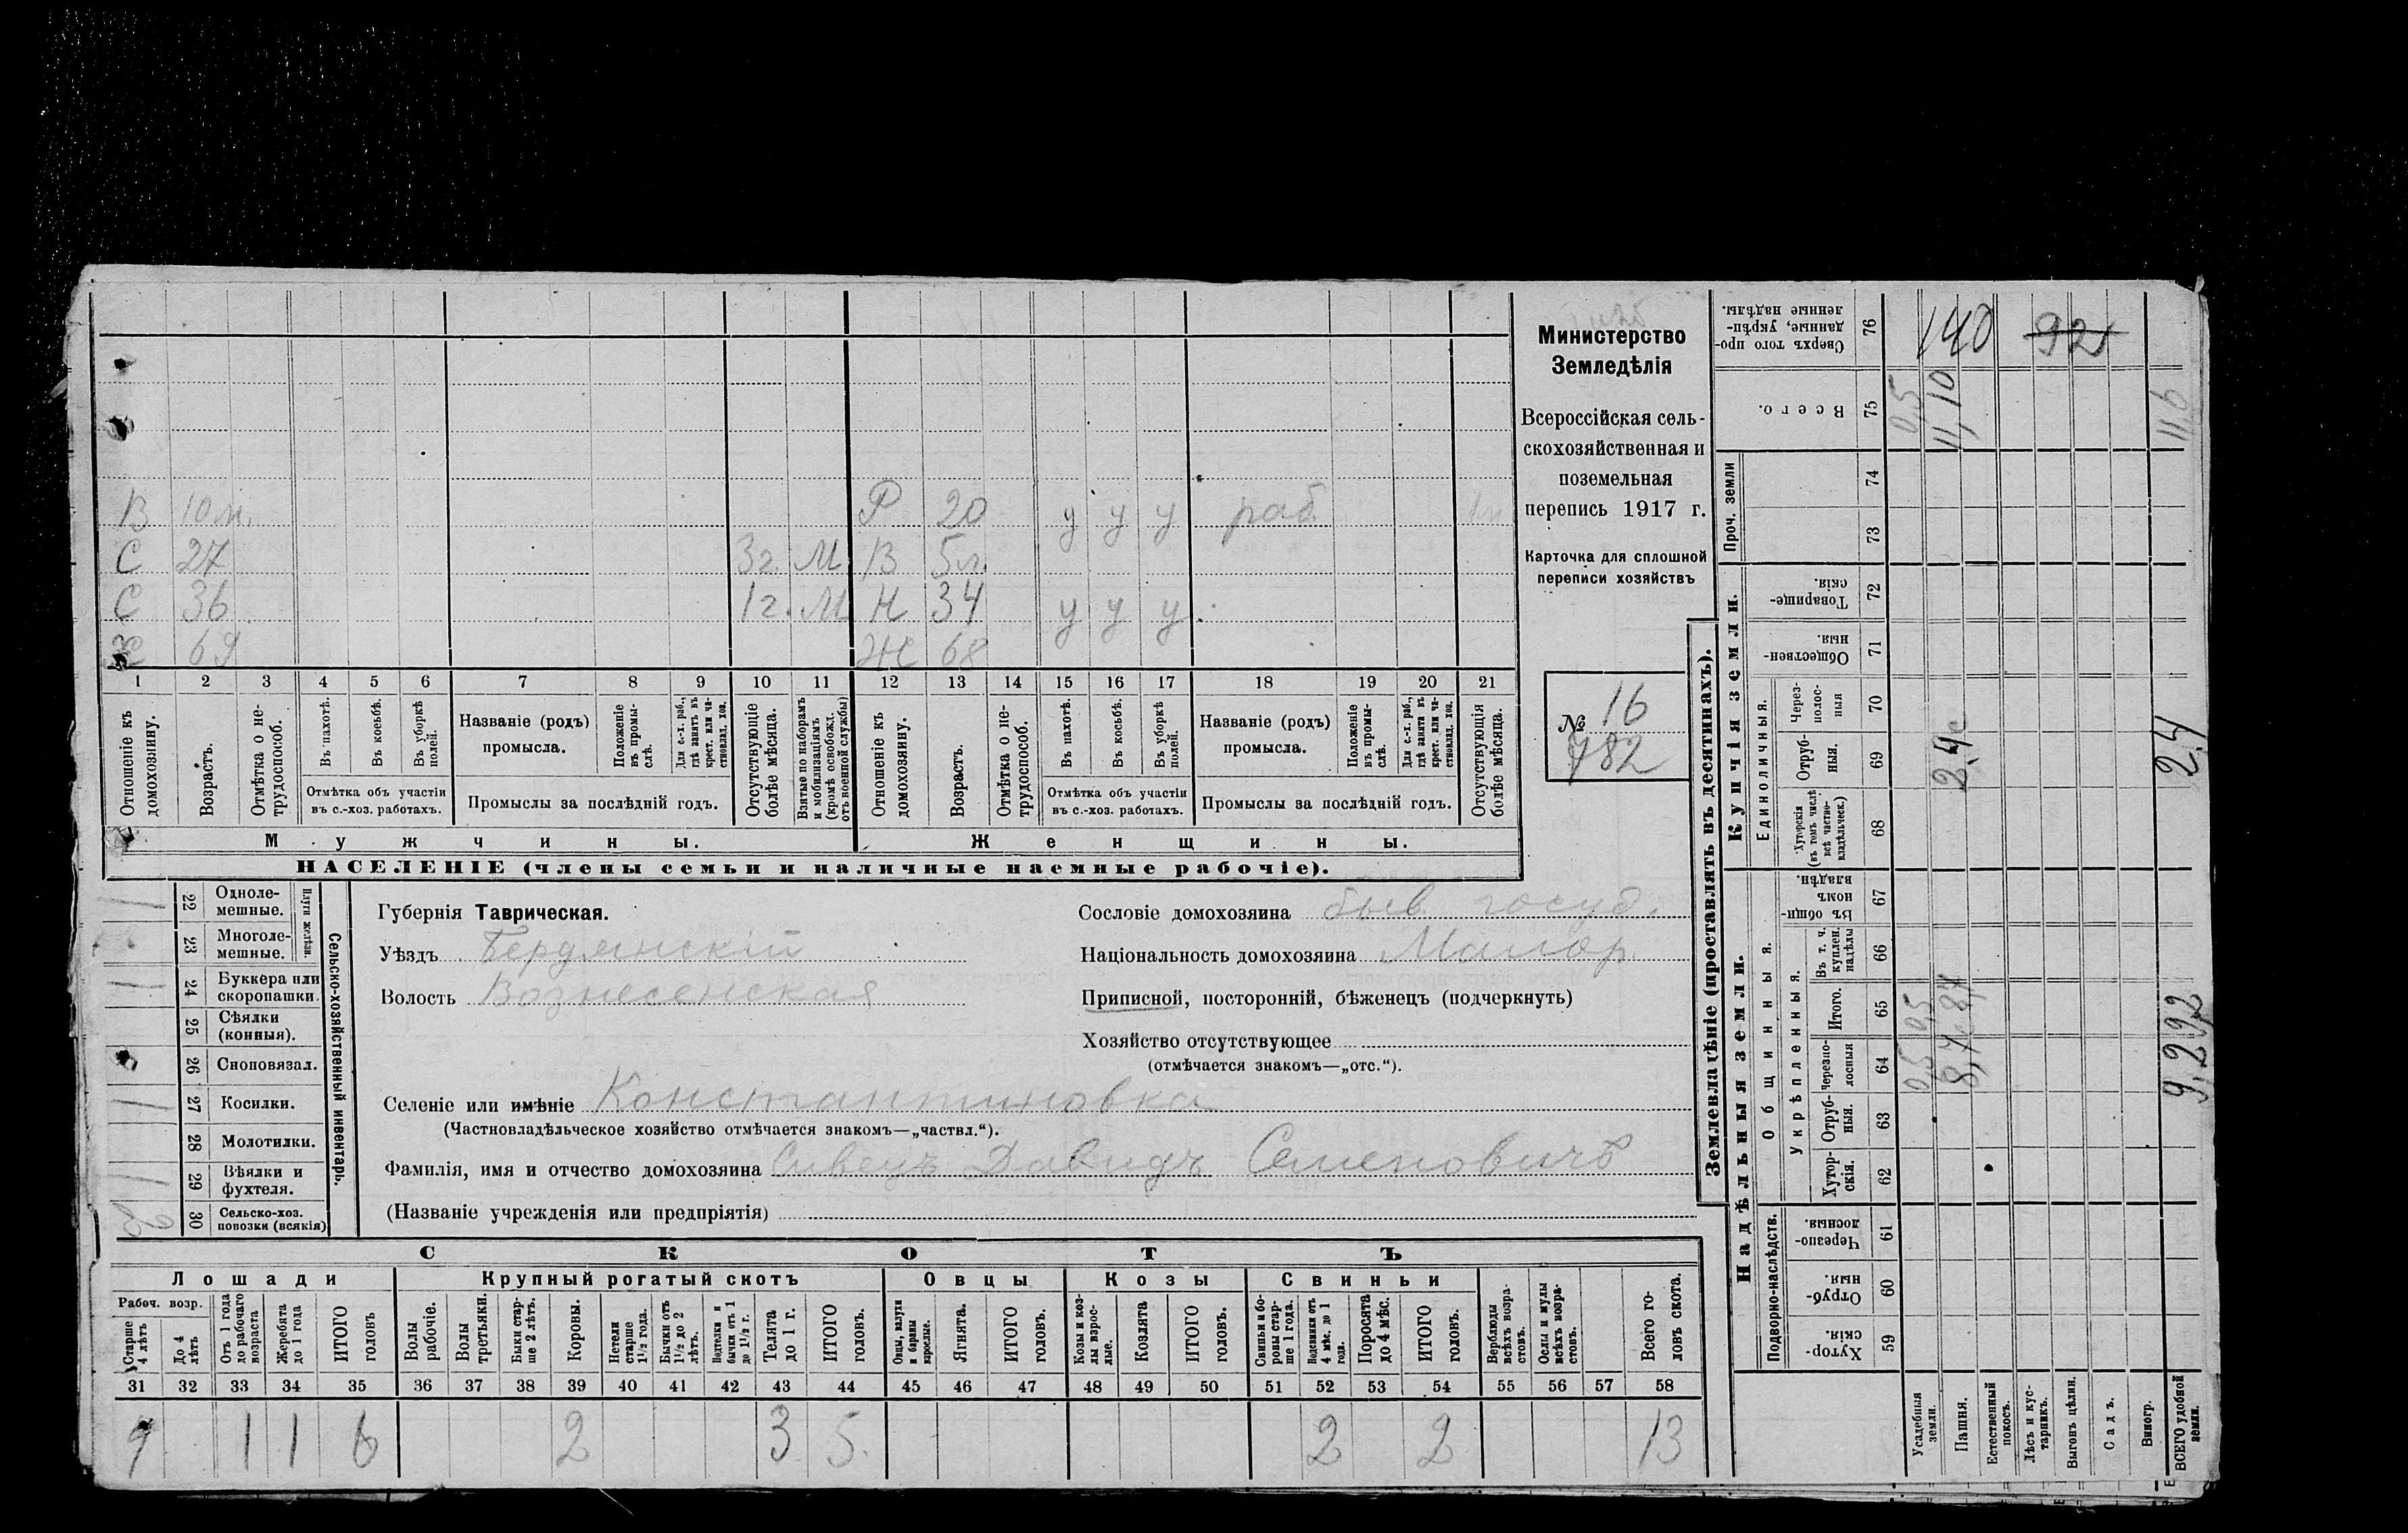 В 10 м. Р 20 у у у раб.
С 27 3 г. М В 5 л.
С 36 1 г. М Н 34 у у у
Х 69 Ж 68
1 2 3 4 5 6 7 8 9 10 11 12 13 14 15 16 17 18 19 20 21
Отношеніе къ домохозяину.
Возрастъ.
Отмѣтка о не-
трудоспособ.
Въ пахотѣ.
Въ косьбѣ.
Въ уборкѣ полей.
Названіе (родъ)
промысла.
Положеніе въ промы-
слѣ.
Для с.-х. раб.,
гдѣ занятъ въ
крест. или ча-
стновлад. хоз.
Отсутствующіе
болѣе мѣсяца.
Взятые по наборамъ
и мобилизаціямъ
(кромѣ освобожд.
отъ военной службы)
Отношеніе къ домохозяину.
Возрастъ.
Отмѣтка о не-
трудоспособ.
Въ пахотѣ.
Въ косьбѣ.
Въ уборкѣ полей.
Названіе (родъ)
промысла.
Положеніе въ промы-
слѣ.
Для с.-х. раб.,
гдѣ занята въ
крест. или ча-
стновлад. хоз.
Отсутствующія
болѣе мѣсяца.
Отмѣтка объ участіи
въ с.-хоз. работахъ.
Промыслы за послѣдній годъ.
Отмѣтка объ участіи
въ с.-хоз. работахъ.
Промыслы за послѣдній годъ.
Мужчины.
Женщины.
НАСЕЛЕНІЕ (члены семьи и наличные наемные рабочіе).
Министерство
Земледѣлія
Всероссійская сель-
скохозяйственная и
поземельная
перепись 1917 г.
Карточка для сплошной
переписи хозяйствъ
№ 16
782
Сельско-хозяйственный инвентарь.
Плуги желѣзн.
1 22 Одноле-
мешные.
23 Многоле-
мешные.
1 24 Буккера или
скоропашки.
25 Сѣялки
(конныя).
26 Сноповязал.
1 27 Косилки.
28 Молотилки.
1 29 Вѣялки и
фухтеля.
30 Сельско-хоз.
повозки (всякія)
Губернія Таврическая.
Уѣздъ Бердянскій
Волость Вознесенская
Сословіе домохозяина быв. госуд.
Національность домохозяина Малор.
Приписной, посторонній, бѣженецъ (подчеркнуть)
Хозяйство отсутствующее
(отмѣчается знакомъ—„отс.“).
Селеніе или имѣніе Константиновка
(Частновладѣльческое хозяйство отмѣчается знакомъ—„частвл.“).
Фамилія, имя и отчество домохозяина Сивецъ Давидъ Семеновичъ
(Названіе учрежденія или предпріятія)
СКОТЪ
Лошади
Крупный рогатый скотъ
Овцы
Козы
Свиньи
Рабоч. возр.
Старше
4 лѣтъ
До 4
лѣтъ
Отъ 1 года
до рабочаго
возраста
Жеребята
до 1 года
ИТОГО
головъ
Волы
рабочіе.
Волы
третьяки.
Быки стар-
ше 2 лѣтъ.
Коровы.
Нетели
старше
1½ года.
Бычки отъ
1½ до 2
лѣтъ.
Подтелки и
бычки отъ 1
до 1½ г.
Телята
до 1 г.
ИТОГО
головъ.
Овцы, валухи
и бараны
взрослые.
Ягнята.
ИТОГО
головъ.
Козы и коз-
лы взрос-
лые.
Козлята
ИТОГО
головъ.
Свиньи и бо-
ровы стар-
ше 1 года.
Подсвинки отъ
4 мѣс. до 1
года.
Поросята
до 4 мѣс.
ИТОГО
головъ.
Верблюды
всѣхъ возра-
стовъ.
Ослы и мулы
всѣхъ возра-
стовъ.
Всего го-
ловъ скота.
31 32 33 34 35 36 37 38 39 40 41 42 43 44 45 46 47 48 49 50 51 52 53 54 55 56 57 58
1 1 6 2 3 5. 2 2 13
Землевладѣніе (проставлять въ десятинахъ).
Надѣльныя земли.
Купчія земли.
Проч. земли
Подворно-наслѣдств.
Общинныя.
Укрѣпленныя.
Единоличныя.
Хутор-
скія. 59
Отруб-
ныя. 60
Черезпо-
лосныя. 61
Хутор-
скія. 62
Отруб-
ныя. 63
Черезпо-
лосныя 64
Итого. 65
Въ т. ч.
куплен.
надѣлы 66
Въ общин-
номъ
владѣн. 67
Хуторскія
(въ томъ числѣ
всѣ частно-
владѣльческ.) 68
Отруб-
ныя. 69
Через-
полос-
ныя 70
Обществен-
ныя. 71
Товарище-
скія. 72
73
74
Всего. 75
Сверхъ того про-
данные, укрѣп-
ленные надѣлы. 76
Усадебныя
земли. 0,5 0,5 0,5
Пашня. 8,7 8,7 2,4 11,10 140
Естественный
покосъ.
Лѣсъ и кус-
тарникъ. 92
Выгонъ цѣлин.
Садъ.
Виногр.
ВСЕГО удобной
земли. 9,2 9,2 2,4 11,6